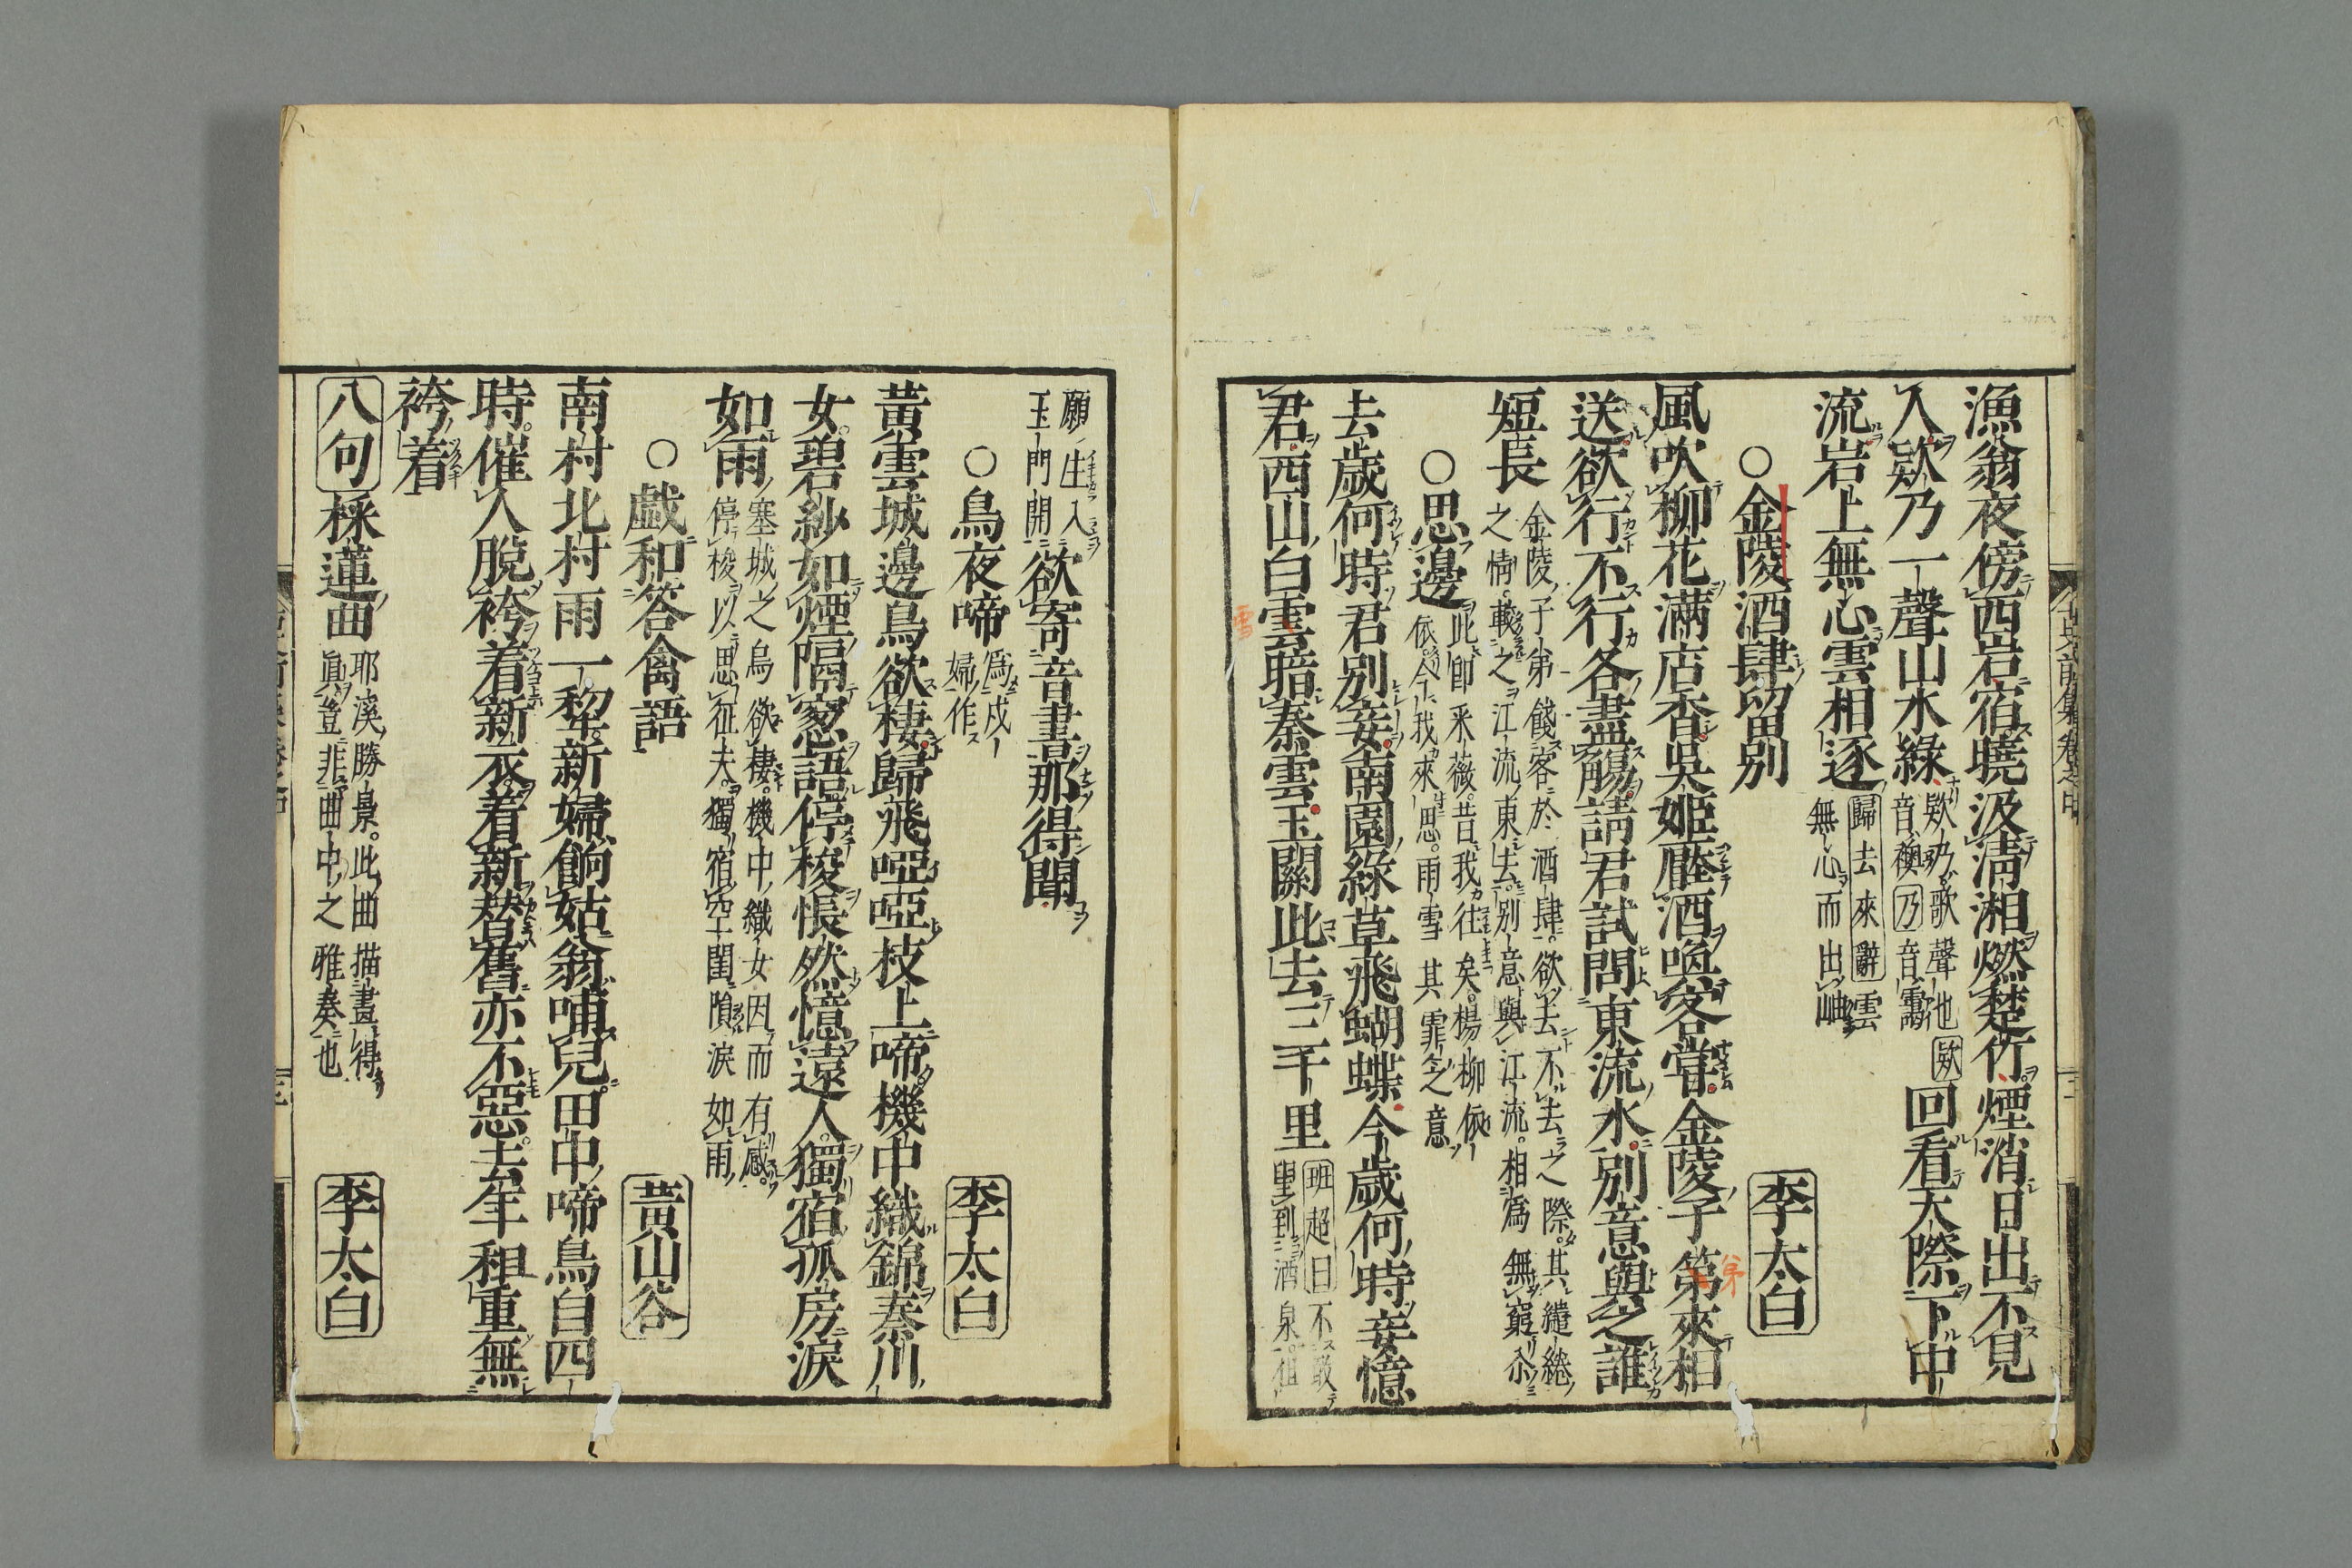 漁翁夜傍西岩宿曉汲淸湘燃楚竹煙消日出不見
人欵乃一聲山水綠欵乃歌聲也欵音襖乃音靄回看天際下中
流岩上無心雲相逐歸去來辭雲無心而出岫
○金陵酒肆留別 李太白
風吹柳花滿店香吳姬壓酒喚客嘗金陵子第來相
弟
送欲行不行各盡觴請君試問東流水別意與之誰
短長金陵子弟餞客於酒肆欲去不去之際其繾綣之情較之江流東去別意與江流相爲無窮尒
○思邊此卽采薇昔我往矣楊柳依依今我來思雨雪其霏之意
去歲何時君別妾南園綠草飛蝴蝶今歲何時妾憶
君西山白雲暗秦雲玉關此去三千里班超曰不敢望到酒泉祖
雪
願生入玉門開欲寄音書那得聞
○烏夜啼爲戍婦作 李太白
黃雲城邊烏欲棲歸飛啞啞枝上啼機中織錦秦川
女碧紗如煙隔窓語停梭悵然憶遠人獨宿孤房淚
如雨塞城之烏欲棲機中織女因而有感停梭以思征夫獨宿空閨隕淚如雨
○戯和答禽語 黃山谷
南村北村雨一犂新婦餉姑翁哺兒田中啼鳥自四
時催人脫袴着新衣着新替舊亦不惡去年租重無
袴着
八句 採蓮曲耶溪勝景此曲描畫得眞豈非曲中之雅奏也 李太白